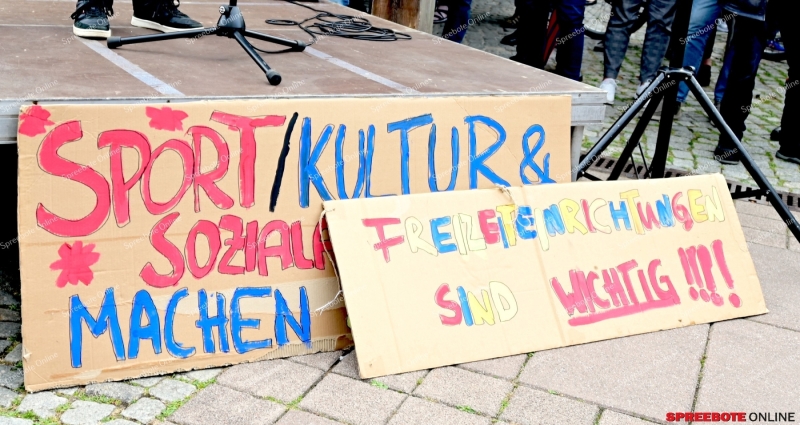 SPORT/KULTUR &
SOZIALA
MACHEN
FREIZEITEINRICHTUNGEN
SIND WICHTIG !!!!
SPREEBOTE ONLINE